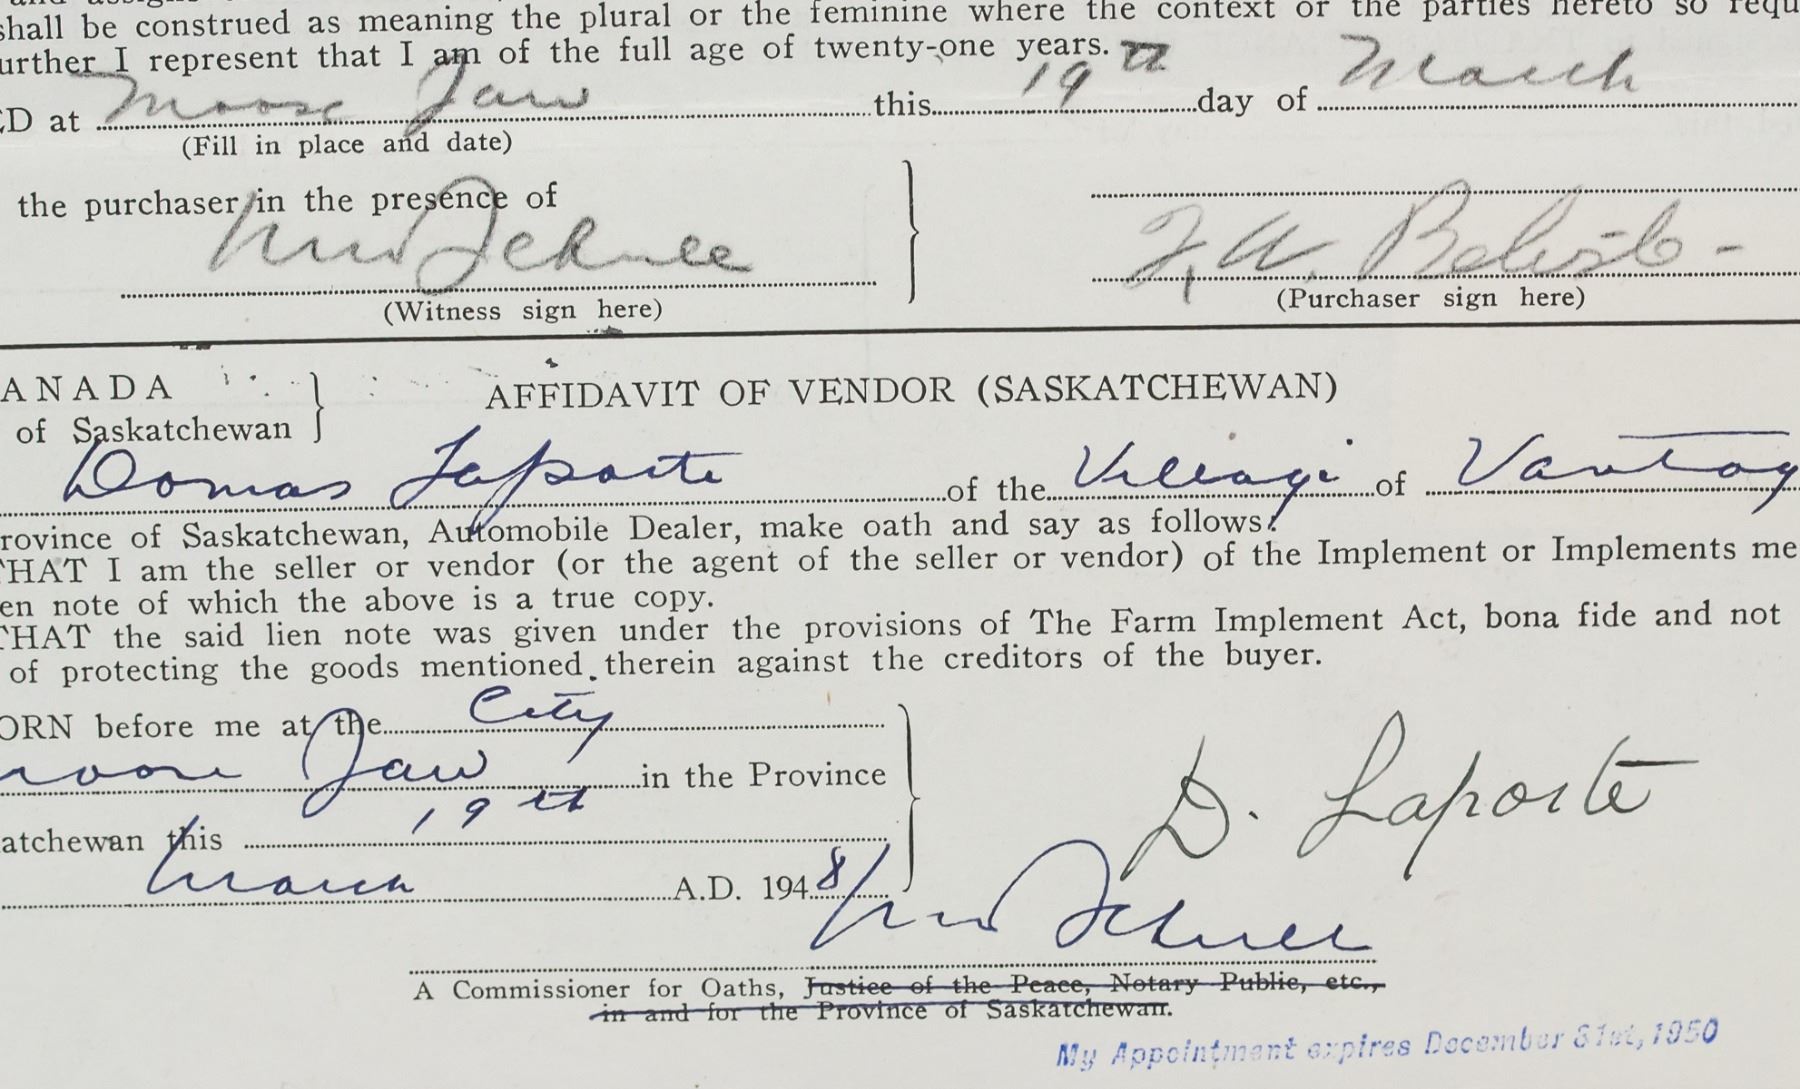 shall be construed as meaning the plural or the feminine where the context or the parties hereto so requ
urther I represent that I am of the full age of twenty-one years.
ED at Moose Jaw this 19th day of March
(Fill in place and date)
the purchaser in the presence of
F, W.
(Witness sign here) (Purchaser sign here)
ANADA
AFFIDAVIT OF VENDOR (SASKATCHEWAN)
of Saskatchewan
Domas Laporte of the Village of Vantag
rovince of Saskatchewan, Automobile Dealer, make oath and say as follows:
THAT I am the seller or vendor (or the agent of the seller or vendor) of the Implement or Implements me
en note of which the above is a true copy.
THAT the said lien note was given under the provisions of The Farm Implement Act, bona fide and not
of protecting the goods mentioned therein against the creditors of the buyer.
ORN before me at the City
Moose Jaw in the Province
atchewan this 19th
March A.D. 1948
D. Laporte
A Commissioner for Oaths, Justice of the Peace, Notary Public, etc.,
in and for the Province of Saskatchewan.
My Appointment expires December 31st, 1950